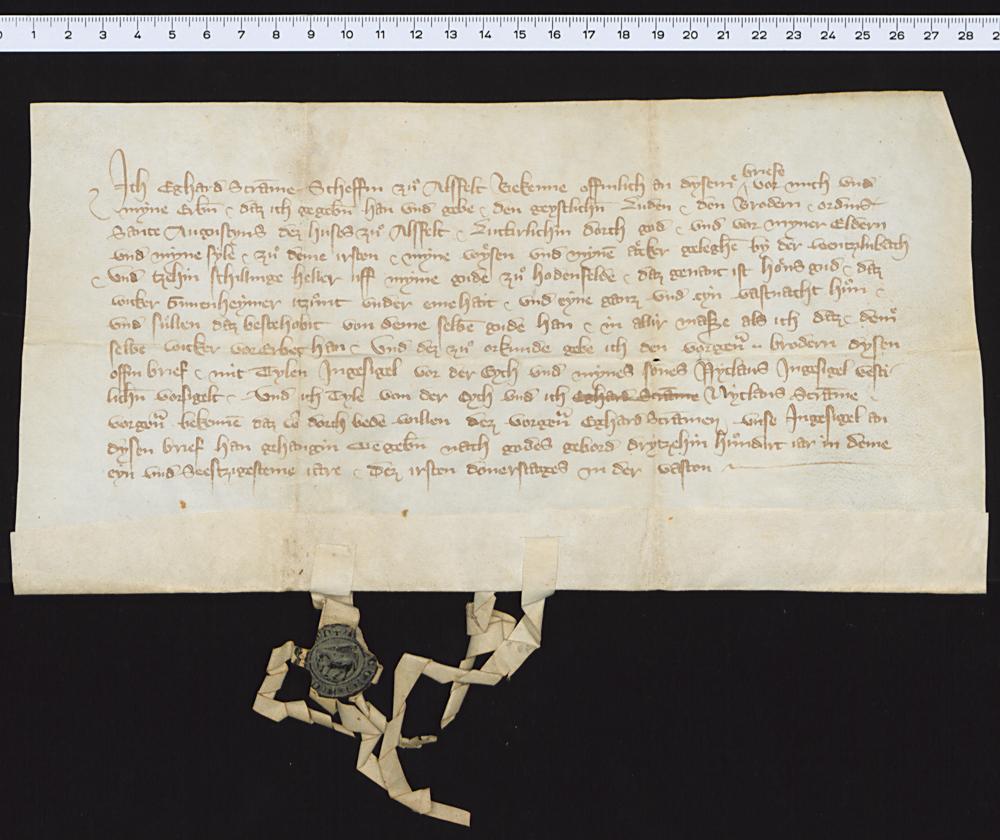 0 1 2 3 4 5 6 7 8 9 10 11 12 13 14 15 16 17 18 19 20 21 22 23 24 25 26 27 28 2
Ich Eghard Scrāme Scheffin zuͦ Alsfelt Bekenne offinlich an dysem briefe vor mich und
myne Erbn daz ich gegebn han und gebe den geystlichn Luden den Brodern ordins
Sante Augustyns dez huses zuͦ Alsfelt Luttirlichin dorch god und vor myner Eldern
und myne sylē zuͦ deme irsten myne wysen und mynē acker geleghē by der
und tzehin schillinge heller uff myme gude zuͦ Hodensfelde daz genant ist hons gud daz
wicker itzunt under eme hait und eyne ganz und eyn vastnacht huͦn
und sullen daz bestehobit von deme selbē gude han in allir masze als ich daz dem
selbē wicker vorerbet han Und dez zuͦ orkunde gebe ich den vorgen brodern dysen
offin brief mit Tylen Ingesigel vor der Eych und mynes sones Nyclaus Ingesigel vesti
lichn vorsigelt Und ich Tyle von der Eych und ich Eghard Scrāme Nyclaus Scrāme
vorgen bekennē daz dorch bede willen dez vorgen Eghard Scrāmen unse Ingesigel an
dysen brief han gehangin Gegebn nach godes gebord drytzehin hundirt iar in deme
eyn und Seestzigesteme iare dez irsten donerstages in der vaston